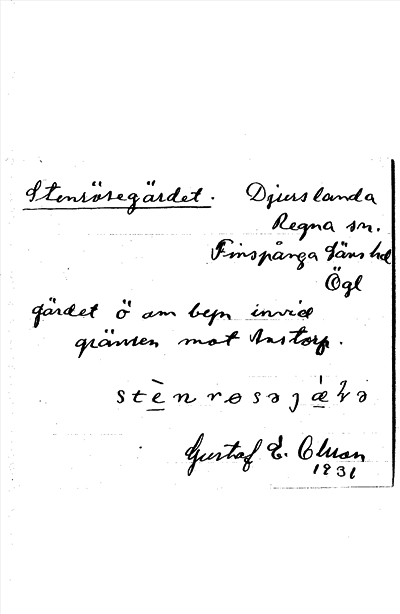 Stenrösegärdet. Djurslanda
Regna sn.
Finspånga läns hd
Ögl
gärdet ö om bebyn invid
gränsen mot
stènrosəjǽɖə
Gustaf E. Olsson
1931